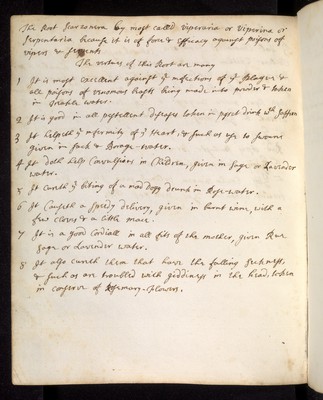 The Root Scorzonera by most called viperaria or viperina or
serpentaria because it is of force & efficacy against poison of
vipers & serpents
The vertues of this Root are many
1 It is most excellent against ye infections of ye Plague &
all poisons of venomous beasts being made into powder & taken
in treakle water.
2 It is good in all pestilent diseases taken in posset drink wth saffron
3 It helpeth ye infirmity of ye Heart, & such as use to swound
given in sack & Borage-water.
4 It doth help Convulsions in Children, given in sage or Lavender
water.
5 It cureth ye biting of a mad dogg drunk in Rose-water.
6 It Causeth a speedy delivery, given in burnt wine, with a
few cloves & a little mace.
7 It is a good Cordiall in all fits of the mother, given Rue
sage or Lavender water.
8 It also cureth them that have the falling sickness,
& such as are troubled with giddiness in the head, taken
in conserve of Rosemary-flowers.